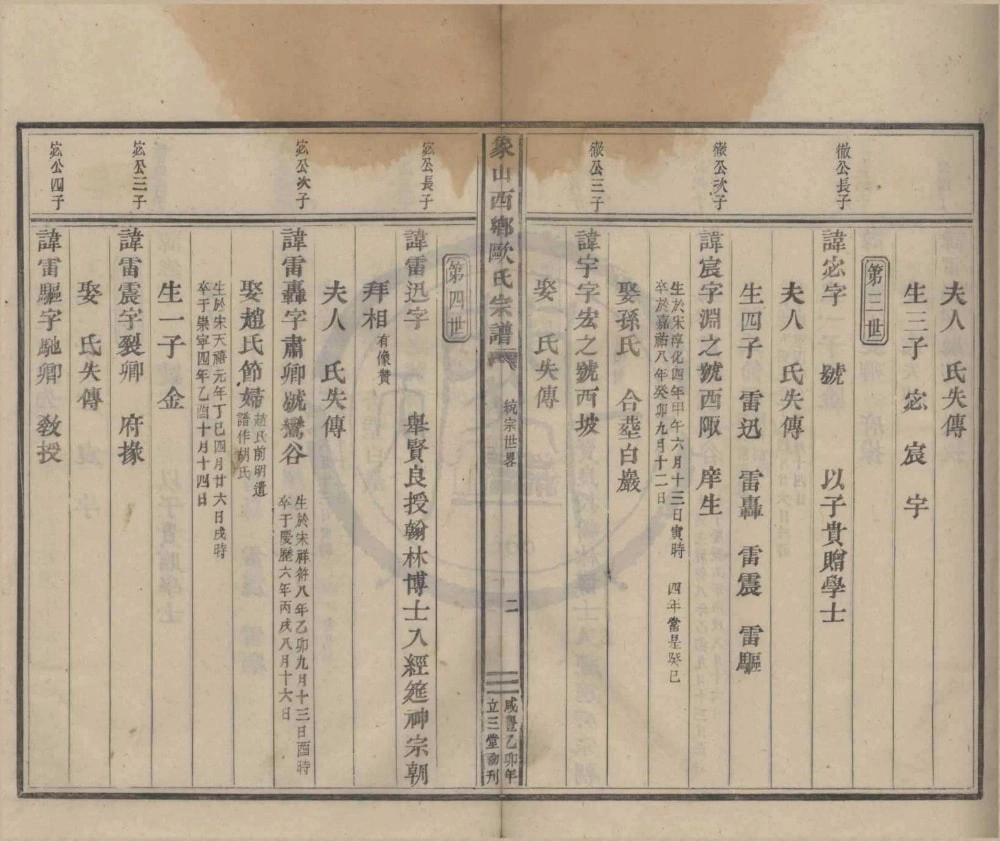 夫人　氏失傳
生三子　宓　宸　宇
第三世
徹公長子
諱宓字　　號　　　以子貴贈學士
夫人　氏失傳
生四子　雷迅　雷轟　雷震　雷驅
徹公次子
諱宸字淵之號西陬　庠生
生於宋淳化四年甲午六月十三日寅時　四年當是癸巳
卒於嘉祐八年癸卯九月十二日
娶孫氏　合塟白巖
徹公三子
諱宇字宏之號西坡
娶　氏失傳
象山西鄉歐氏宗譜
統宗世畧
二
咸豐乙卯年
立三堂
刊
第四世
宓公長子
諱雷迅字　　舉賢良授翰林博士入經筵神宗朝
拜相有像贊
夫人　氏失傳
宓公次子
諱雷轟字肅卿號鸞谷
生於宋祥符八年乙卯九月十三日酉時
卒于慶歷六年丙戌八月十六日
娶趙氏節婦
趙氏前明遺
譜作胡氏
生於宋天禧元年丁巳四月廿六日戌時
卒于崇寧四年乙酉十月十四日
生一子　金
宓公三子
諱雷震字裂卿　府掾
娶　氏失傳
宓公四子
諱雷驅字馳卿　敎授